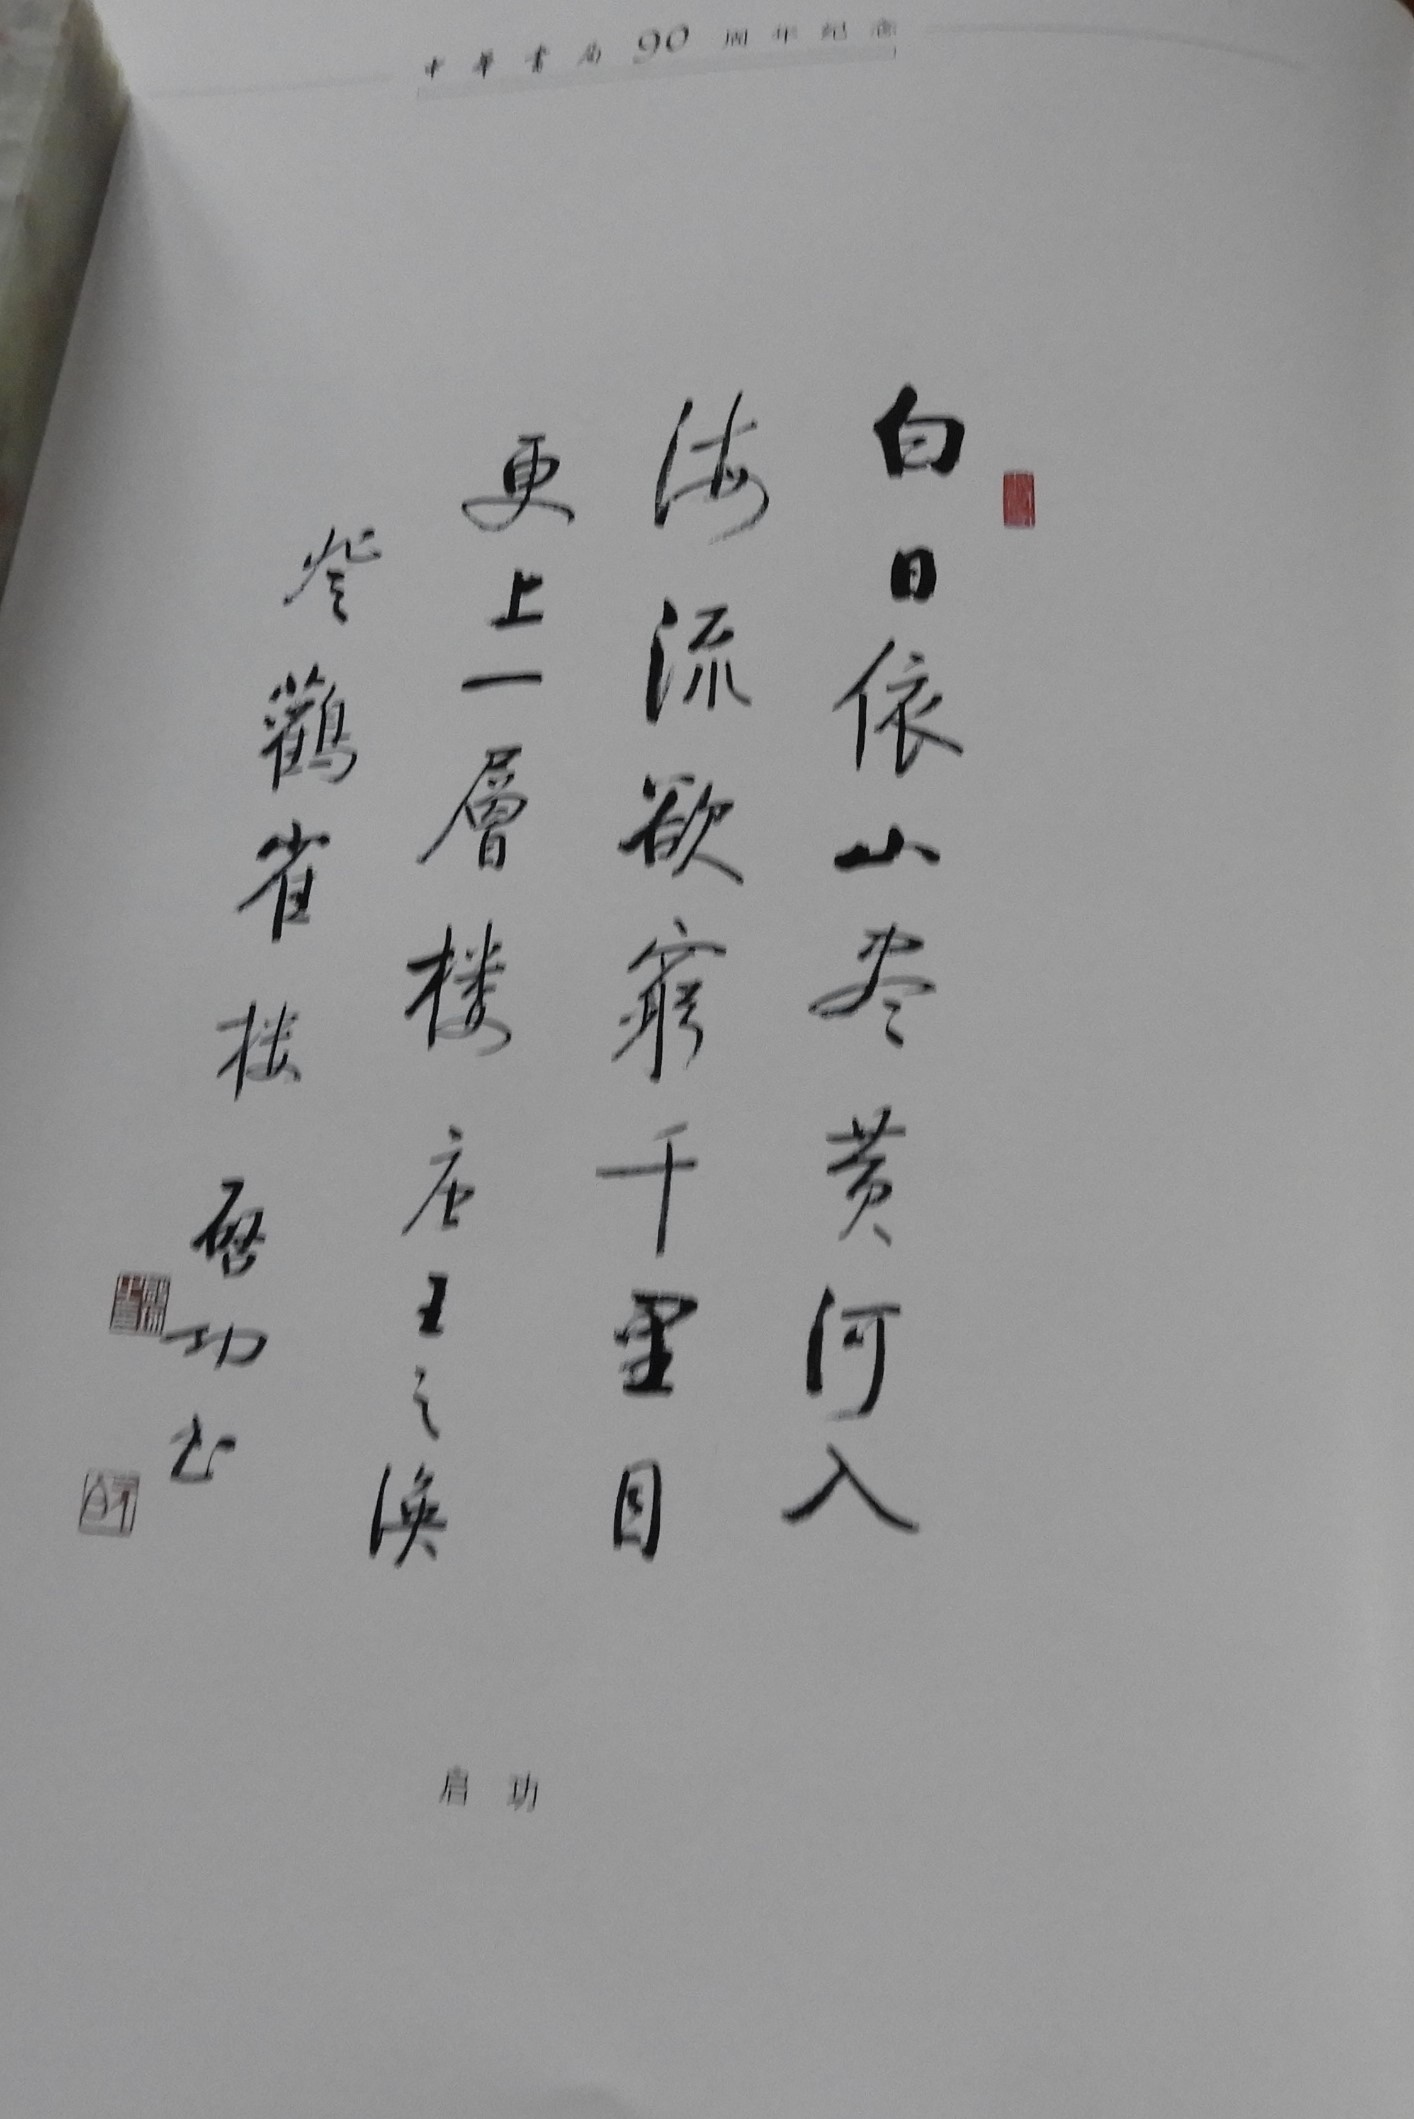 中华书局90周年纪念
白日依山尽黄河入
海流欲穷千里目
更上一層楼唐王之涣
登鸛雀楼 啓功书
启功